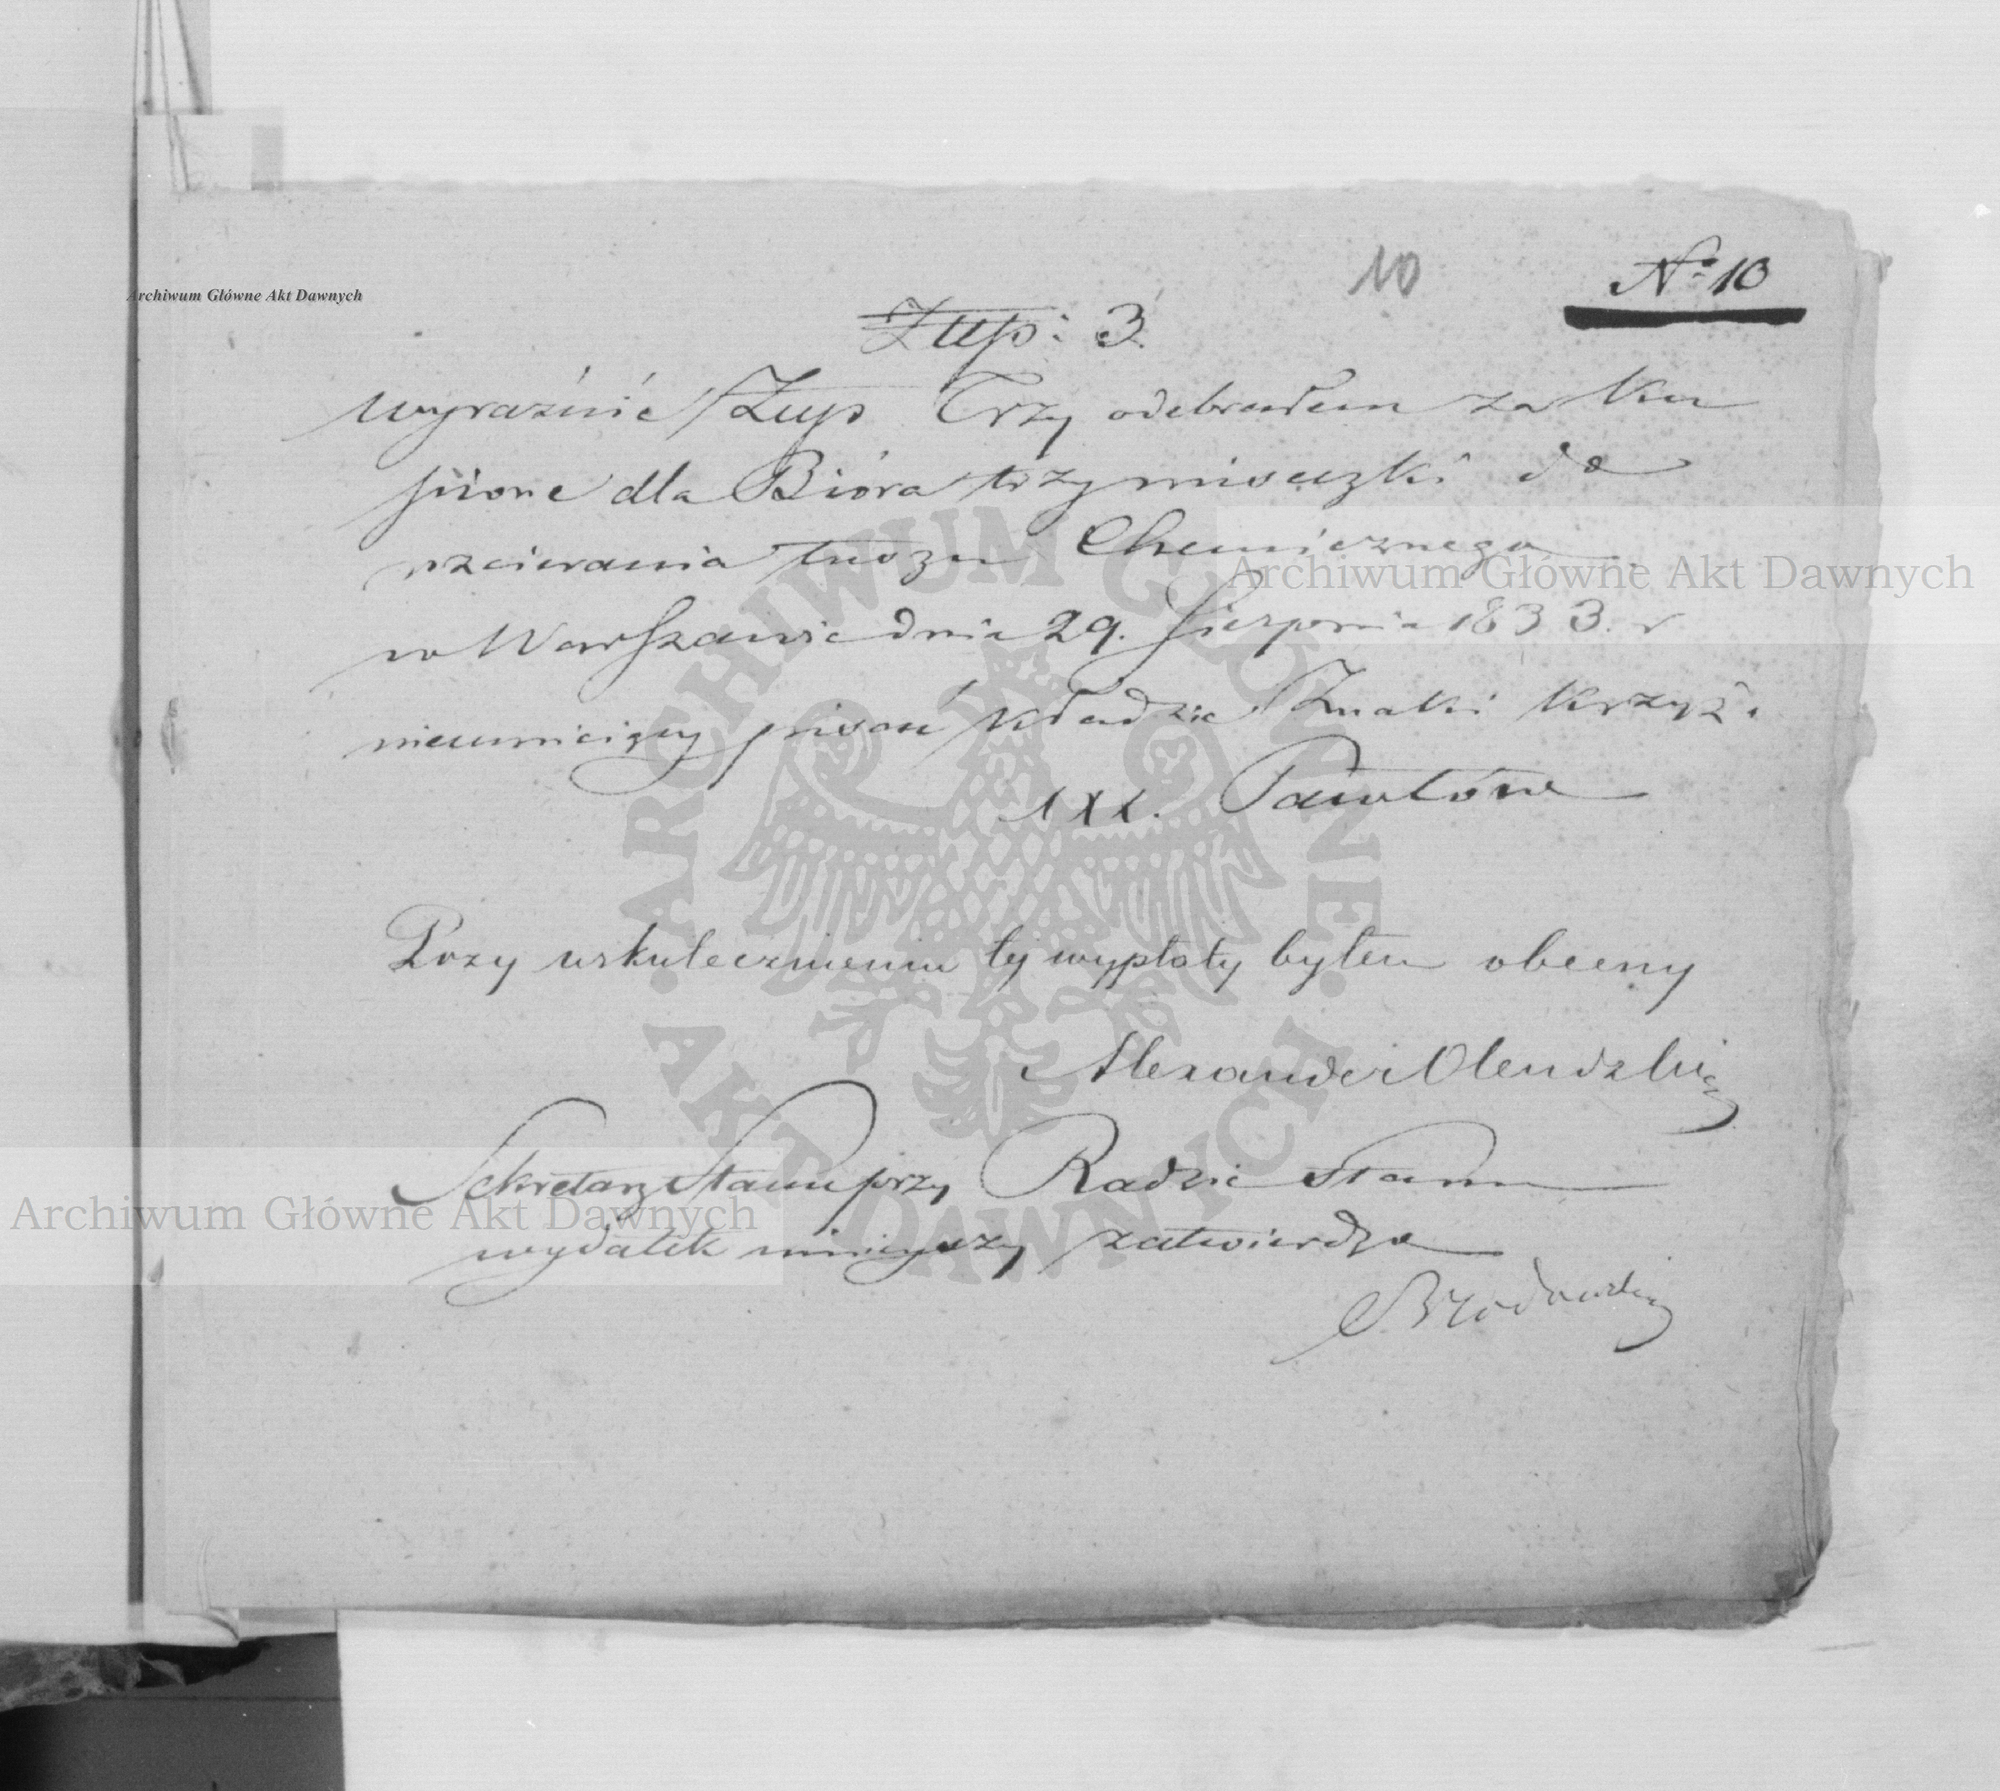 10
No 10
Archiwum Główne Akt Dawnych
Złłp: 3.
wyraźnie Złłp Trzy odebrałem za ku
pione dla Bióra trzy miseczki do
rozcierania tuszu Chemicznego
w Warszawie dnia 29. Sierpnia 1833. r
nieumiejący pisać kładzie Znaki krzyż.
XXX. Pawłowa
Archiwum Główne Akt Dawnych
Przy uskutecznieniu tej wypłaty byłem obecny
Alexander Olendzki
Sekretarz Stanu przy Radzie Stanu
wydatek niniejszy zatwierdza
Brodowski
Archiwum Główne Akt Dawnych
ARCHIWUM GŁÓWNE AKT DAWNYCH